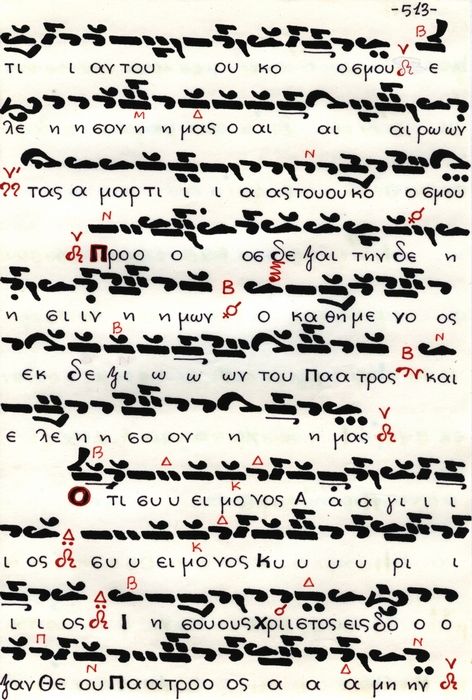 -513-
τι ι αν του ου κο ο σμου ε
λε η η σον η η μας ο αι αι αι ρω ων
τας α μαρ τι ι ι α ας του ου κο ο σμου
Προ ο ο οσ δε ξαι την δε η
η σι ιν η η μων ο κα θη με νο ος
εκ δε ξι ω ω ων του Πα α τρος και
ε λε η η σο ον η η μας
Ο τι συ υ ει μο νος Α α α γι ι ι
ι ος συ υ ει μο νος Κυ υ υ υ ρι ι
ι ι ος Ι η σου ους Χρι ι στος εις δο ο ο
ξαν Θε ου Πα α τρο ο ος α α α μη ην